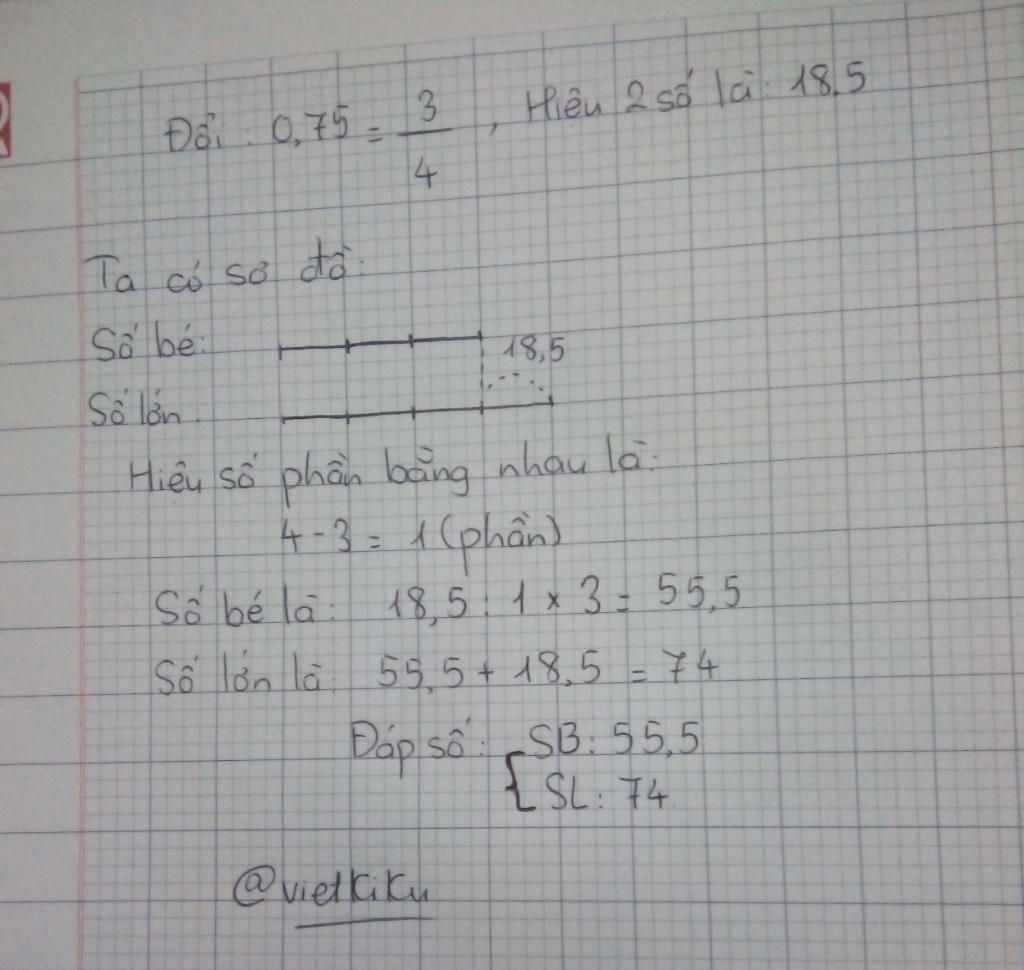 Đổi: 0,75 = 3/4, Hiệu 2 số là: 18,5
Ta có sơ đồ:
Số bé:
18,5
Số lớn:
Hiệu số phần bằng nhau là:
4 - 3 = 1 (phần)
Số bé là: 18,5 : 1 × 3 = 55,5
Số lớn là: 55,5 + 18,5 = 74
Đáp số: { SB: 55,5
SL: 74
@vietkiku